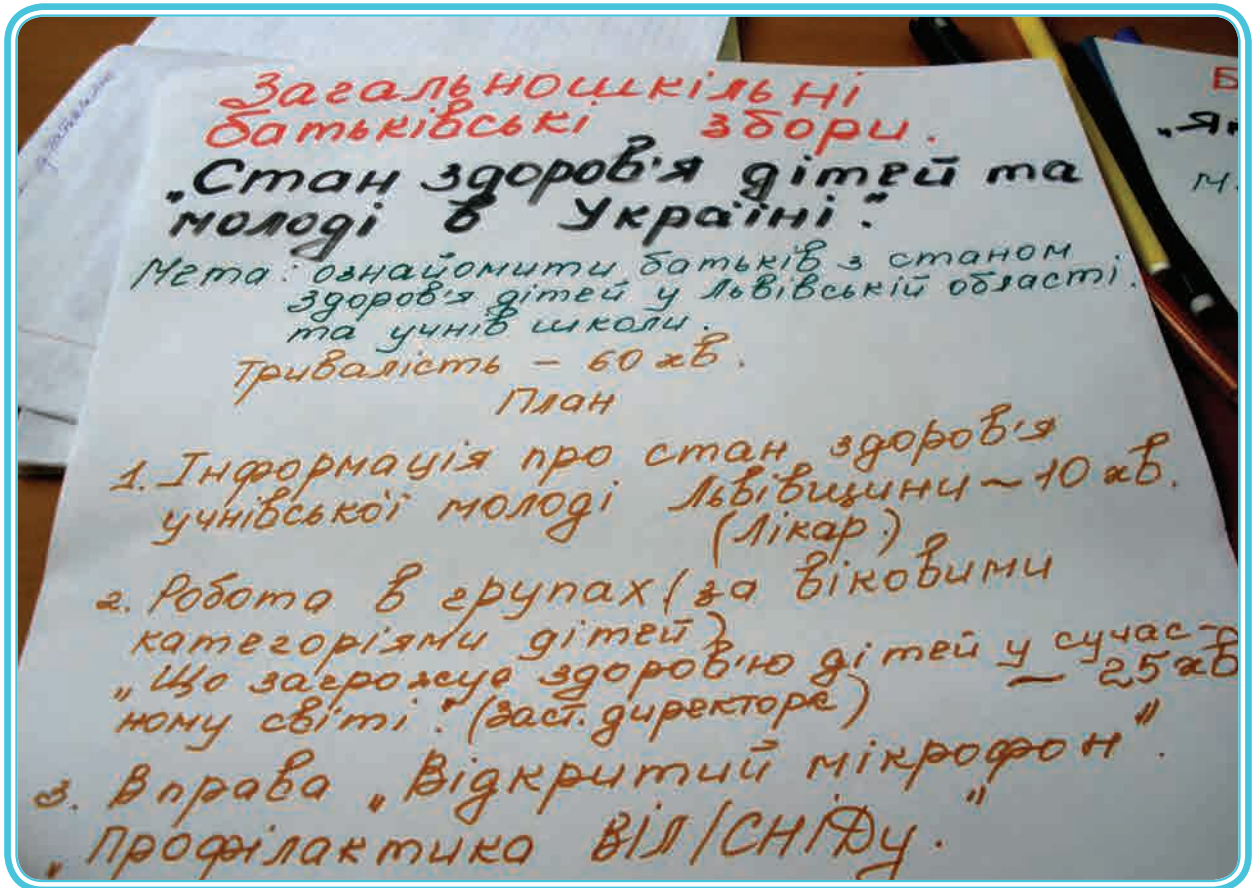 Загальношкільні
батьківські збори.
„Стан здоров'я дітей та
молоді в Україні".
Мета: ознайомити батьків з станом
здоров'я дітей у Львівській області.
та учнів школи.
Тривалість – 60 хв.
План
1. Інформація про стан здоров'я
учнівської молоді Львівщини ~ 10 хв.
(Лікар.)
2. Робота в групах (за віковими
категоріями дітей)
„Що загрожує здоров'ю дітей у сучас-
ному світі". (заст. директора) — 25 хв
3. Вправа „Відкритий мікрофон".
„Профілактика ВІЛ/СНІДу".
Б
„Як
М